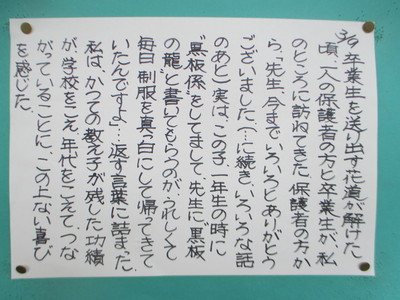 3/9 卒業生を送り出す花道が解けた
頃、一人の保護者の方と卒業生が、私
のところに訪ねてきた。保護者の方か
ら、「先生、今までいろいろとありがとう
ございました。(…に続き、いろいろな話
のあと)実は、この子、一年生の時に
“黒板係”をしてまして、先生に“黒板
の龍”と書いてもらうのが、うれしくて
毎日、制服を真っ白にして帰ってきて
いたんですよ」…返す言葉に詰まった。
私は、かつての教え子が残した功績
が、学校をこえ、年代をこえて、つな
がっていることに、この上ない喜び
を感じた。